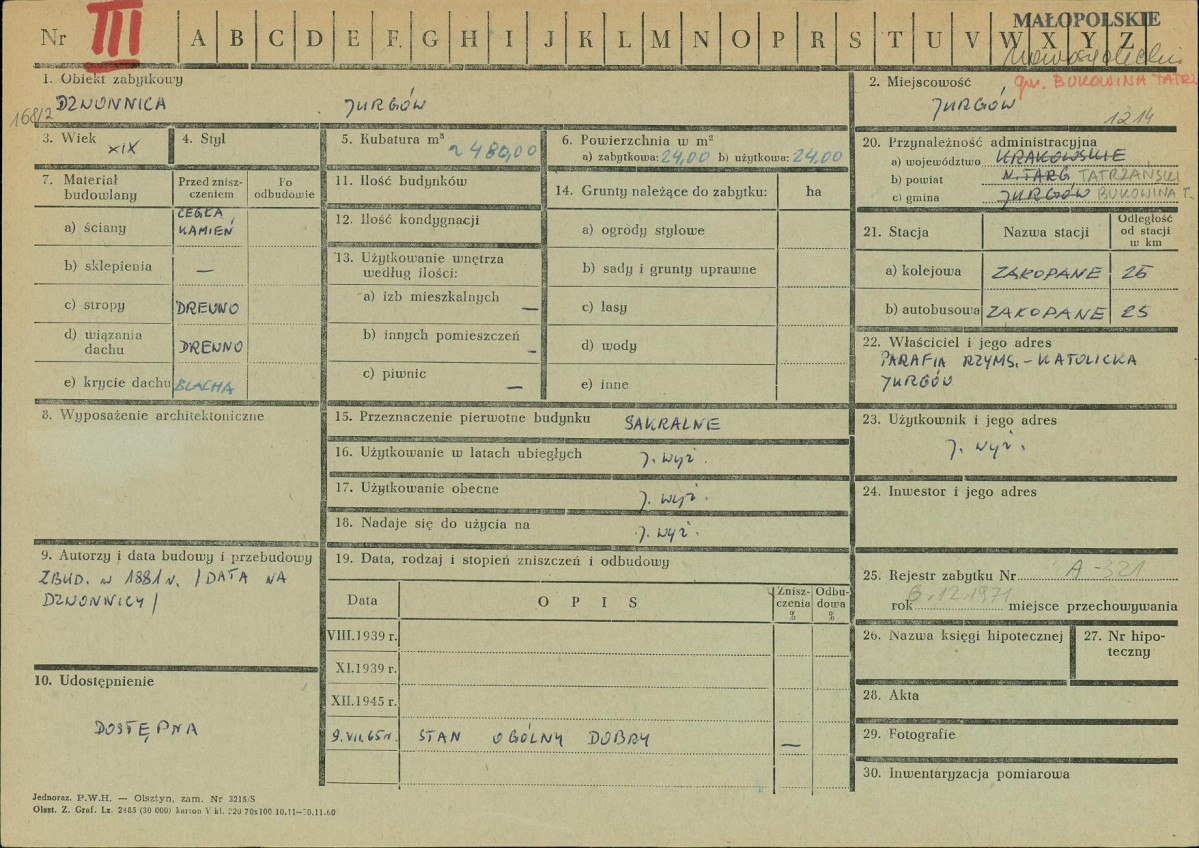 Nr III A B C D E F G H I J K L M N O P R S T U V W X Y Z
MAŁOPOLSKIE
1. Obiekt zabytkowy
168/2 DZWONNICA JURGÓW
2. Miejscowość gm. BUKOWINA TATRZ
JURGÓW 1214
3. Wiek XIX
4. Styl
5. Kubatura m³ ~480,00
6. Powierzchnia w m²
a) zabytkowa: 24,00 b) użytkowa: 24,00
7. Materiał budowlany
Przed znisz-
czeniem
Po
odbudowie
a) ściany CEGŁA,
KAMIEŃ
b) sklepienia —
c) stropy DREWNO
d) wiązania
dachu DREWNO
e) krycie dachu BLACHA
8. Wyposażenie architektoniczne
9. Autorzy i data budowy i przebudowy
ZBUD. W 1881 R. /DATA NA
DZWONNICY/
10. Udostępnienie
DOSTĘPNA
11. Ilość budynków
12. Ilość kondygnacji
13. Użytkowanie wnętrza
według ilości:
a) izb mieszkalnych —
b) innych pomieszczeń —
c) piwnic —
14. Grunty należące do zabytku: ha
a) ogrody stylowe
b) sady i grunty uprawne
c) lasy
d) wody
e) inne
15. Przeznaczenie pierwotne budynku SAKRALNE
16. Użytkowanie w latach ubiegłych J. WYŻ.
17. Użytkowanie obecne J. WYŻ.
18. Nadaje się do użycia na J. WYŻ.
19. Data, rodzaj i stopień zniszczeń i odbudowy
Data O P I S
Znisz-
czenia
%
Odbu-
dowa
%
VIII.1939 r.
XI.1939 r.
XII.1945 r.
9.VII.65r. STAN OGÓLNY DOBRY —
20. Przynależność administracyjna
a) województwo KRAKOWSKIE
b) powiat N. TARG TATRZAŃSKI
c) gmina JURGÓW BUKOWINA T.
21. Stacja
Nazwa stacji
Odległość
od stacji
w km
a) kolejowa ZAKOPANE 25
b) autobusowa ZAKOPANE 25
22. Właściciel i jego adres
PARAFIA RZYMS.-KATOLICKA
JURGÓW
23. Użytkownik i jego adres
J. WYŻ.
24. Inwestor i jego adres
25. Rejestr zabytku Nr A-321
rok 6.12.1971 miejsce przechowywania
26. Nazwa księgi hipotecznej
27. Nr hipo-
teczny
28. Akta
29. Fotografie
30. Inwentaryzacja pomiarowa
Jednoraz. P.W.H. — Olsztyn, zam. Nr 3215/S
Olszt. Z. Graf. Lz. 2485 (30 000) karton V kl. 220 70x100 10.11—30.11.60